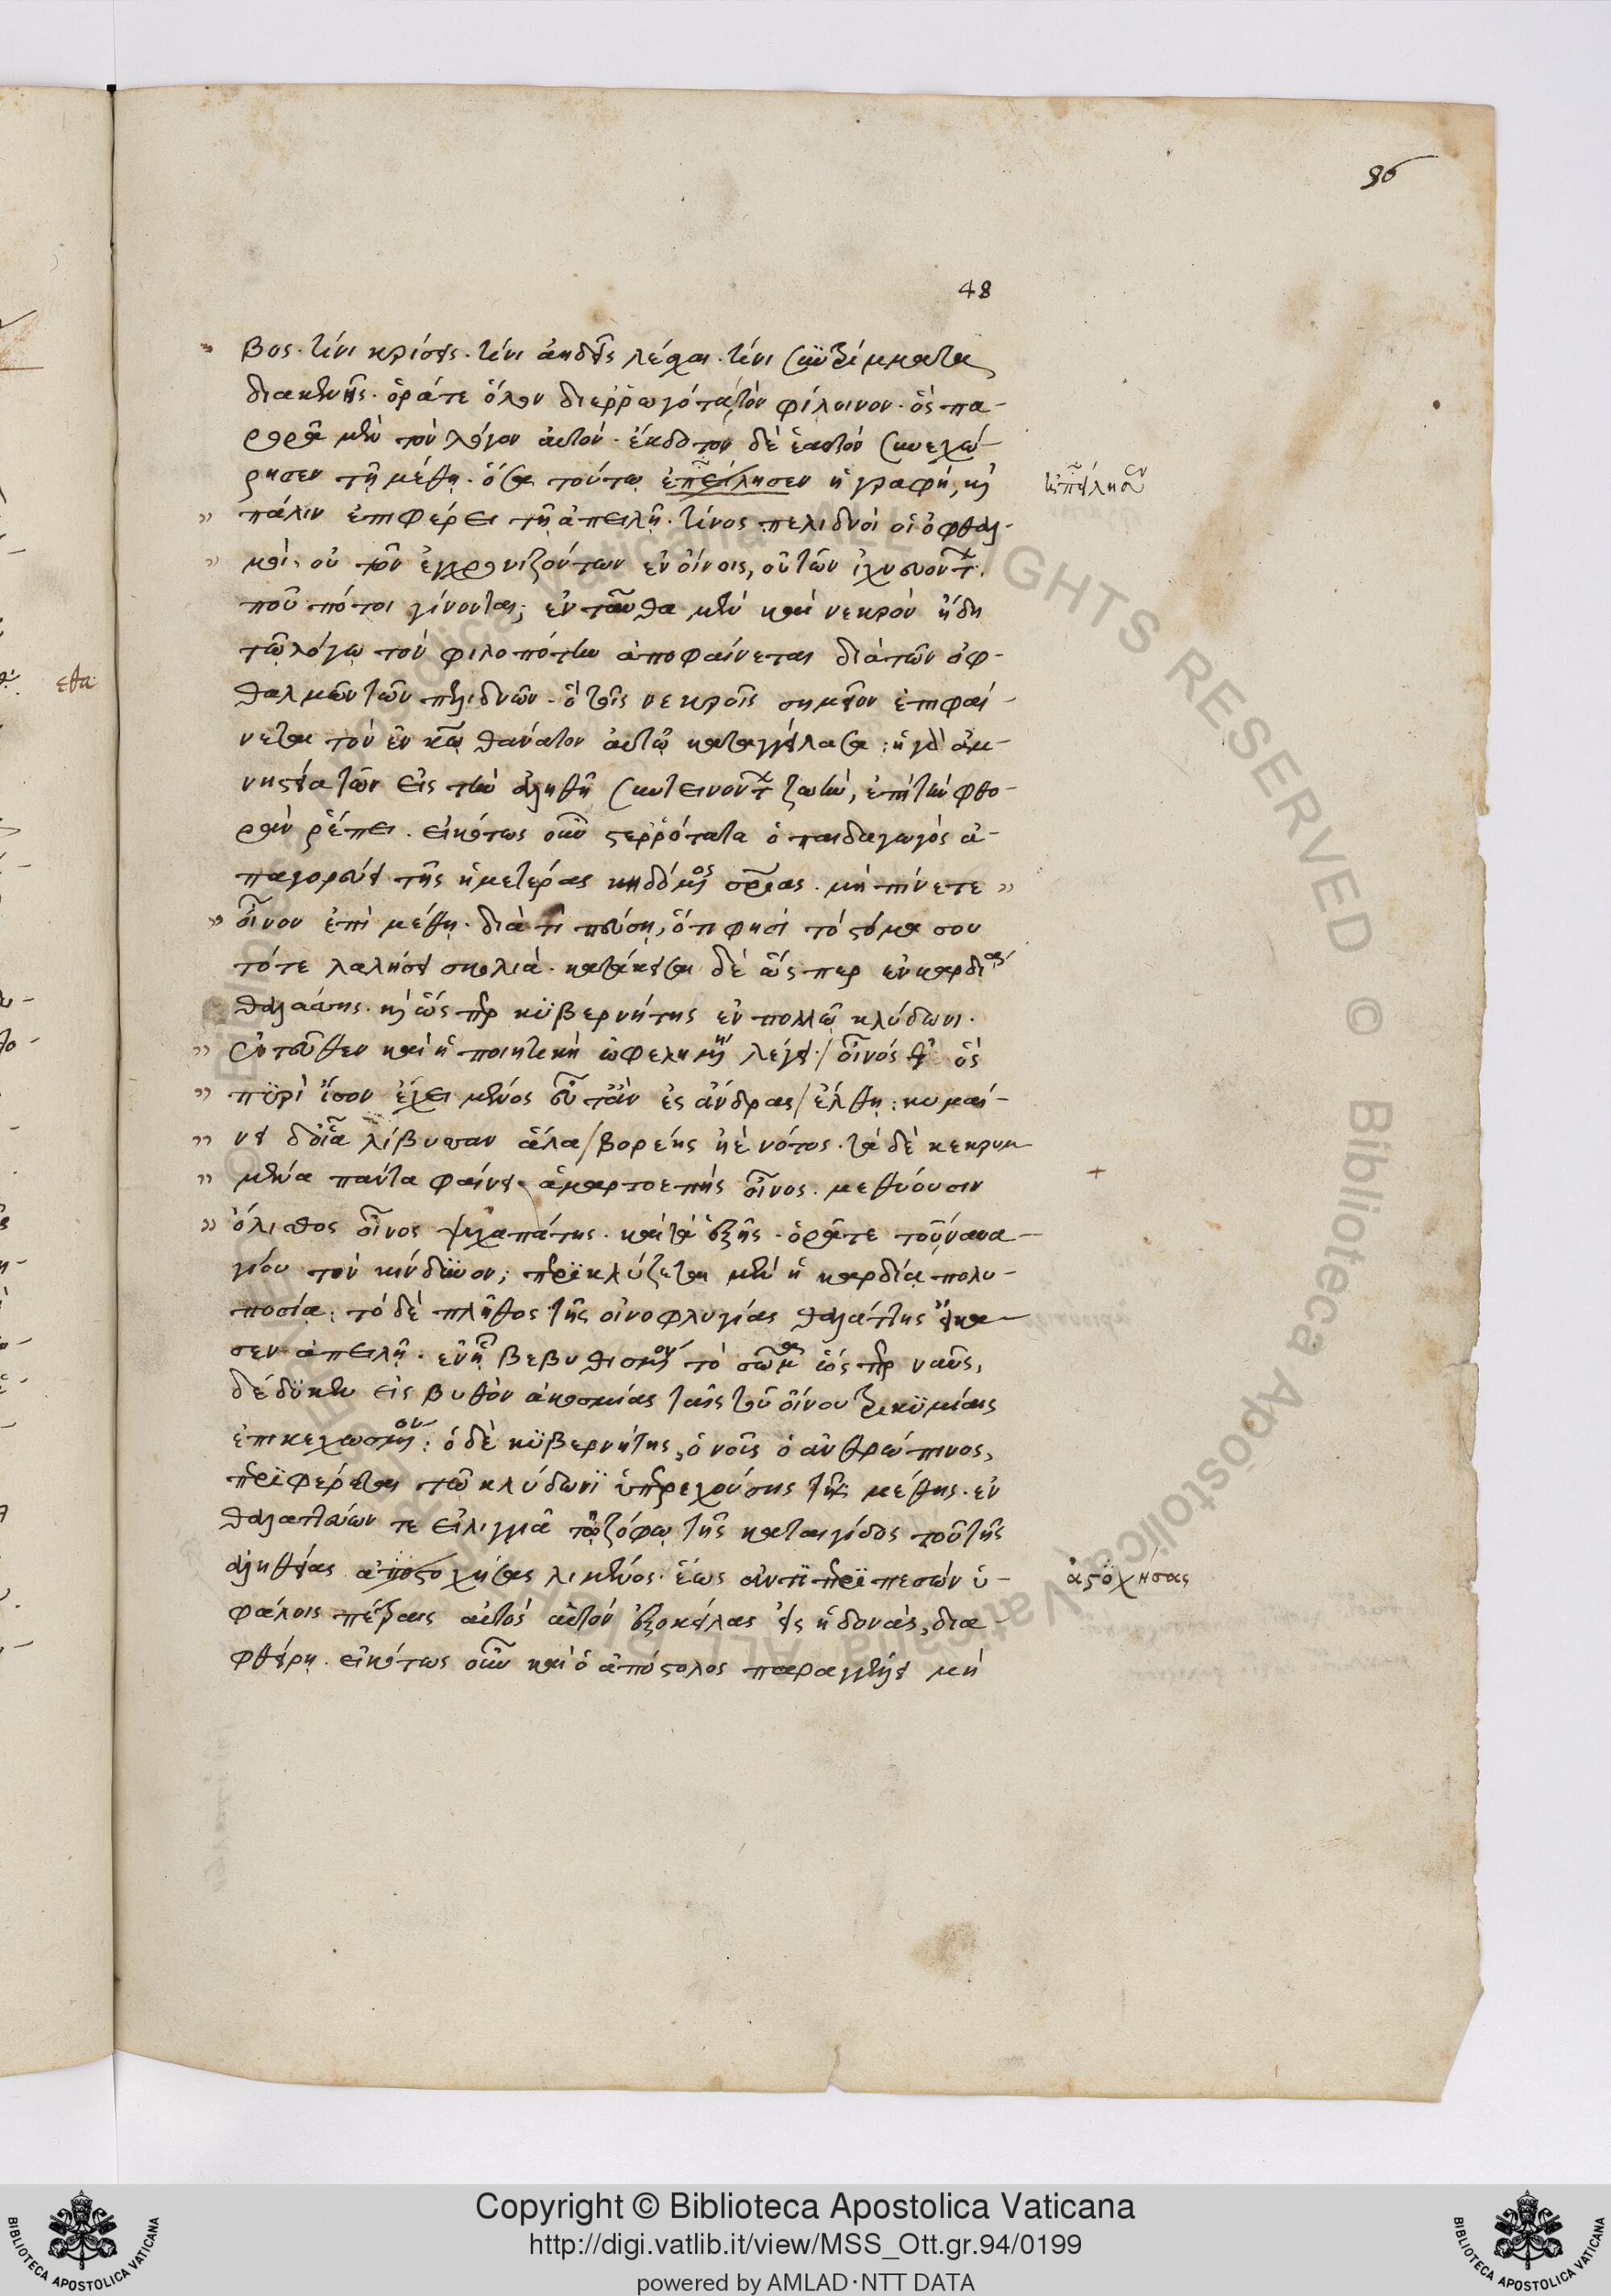 96
48
βος. τίνι κρίσεις. τίνι ἀηδεῖς λέσχαι. τίνι συντρίμματα
διακενῆς. ὁρᾶτε ὅλον διερρωγότα τὸν φίλοινον. ὃς πα-
ρορᾷ μὲν τὸν λόγον αὐτὸν. ἔκδοτον δὲ ἑαυτὸν συνεχώ-
ρησεν τῇ μέθῃ. ὅσα τούτῳ ἐπείλησεν ἡ γραφή, καὶ
ἠπείλησεν
πάλιν ἐπιφέρει τῇ ἀπειλῇ. τίνος πελιδνοὶ οἱ ὀφθαλ-
μοί. οὐ τῶν ἐγχρονιζόντων ἐν οἴνοις, οὐ τῶν ἰχνευόντων.
ποῦ πότοι γίνονται; ἐνταῦθα μὲν καὶ νεκρὸν ἤδη
τῷ λόγῳ τὸν φιλοπότην ἀποφαίνεται διὰ τῶν ὀφ-
εθα
θαλμῶν τῶν πελιδνῶν. ὃ τοῖς νεκροῖς σημεῖον ἐπιφαί-
νεται τὸν ἐν κῷ θάνατον αὐτῷ καταγγείλασα: ἡ γὰρ ἀμ-
νηστία τῶν εἰς τὴν ἀληθῆ συντεινόντων ζωὴν, ἐπὶ τὴν φθο-
ρὰν ῥέπει. εἰκότως οὖν στερρότατα ὁ παιδαγωγὸς ἀ-
παγορεύει τῆς ἡμετέρας κηδόμενος σωτηρίας. μὴ πίνετε
οἶνον ἐπὶ μέθῃ. διὰ τί πεύσῃ, ὅτι φησὶ τὸ στόμα σου
τότε λαλήσει σκολιὰ. κατάκεισαι δὲ ὥσπερ ἐν καρδίᾳ
θαλάσσης. καὶ ὥσπερ κυβερνήτης ἐν πολλῷ κλύδωνι.
ἐντεῦθεν καὶ ἡ ποιητικὴ ὠφελημένη λέγει / οἶνός θ' ὃς
πυρὶ ἴσον ἔχει μένος εὖτ' ἂν ἐς ἄνδρας / ἔλθῃ: κυμαί-
νει δ' οἷα λίβυσσαν ἅλα / βορέης ἠὲ νότος. τὰ δὲ κεκρυμ-
μένα πάντα φαίνει. ἁμαρτοεπὴς οἶνος. μεθύουσιν
ὄλισθος οἶνος ψυχαπάτης. καὶ τὰ ἑξῆς. ὁρᾶτε τοῦ ναυα-
γίου τὸν κίνδυνον; περικλύζεται μὲν ἡ καρδία πολυ-
ποσίᾳ: τὸ δὲ πλῆθος τῆς οἰνοφλυγίας θαλάττης εἴκα-
σεν ἀπειλῇ. ἐν ᾗ βεβυθισμένον τὸ σῶμα ὥσπερ ναῦς,
δέδυκεν εἰς βυθὸν ἀκοσμίας ταῖς τοῦ οἴνου τρικυμίαις
ἐπικεχωσμένον: ὁ δὲ κυβερνήτης, ὁ νοῦς ὁ ἀνθρώπινος,
περιφέρεται τῷ κλύδωνι ὑπερεχούσης τῆς μέθης. ἐν
θαλαττεύων τε εἰλιγγιᾷ τῷ ζόφῳ τῆς καταιγίδος τοῦ τῆς
ἀληθείας ἀποστοχήσας λιμένος. ἕως ἀντιπεριπεσὼν ὑ-
ἀστοχήσας
φάλοις πέτραις αὐτὸς αὑτὸν ἐξοκείλας εἰς ἡδονὰς, δια-
φθείρῃ. εἰκότως οὖν καὶ ὁ ἀπόστολος παραγγέλλει μὴ
Copyright © Biblioteca Apostolica Vaticana
http://digi.vatlib.it/view/MSS_Ott.gr.94/0199
powered by AMLAD·NTT DATA